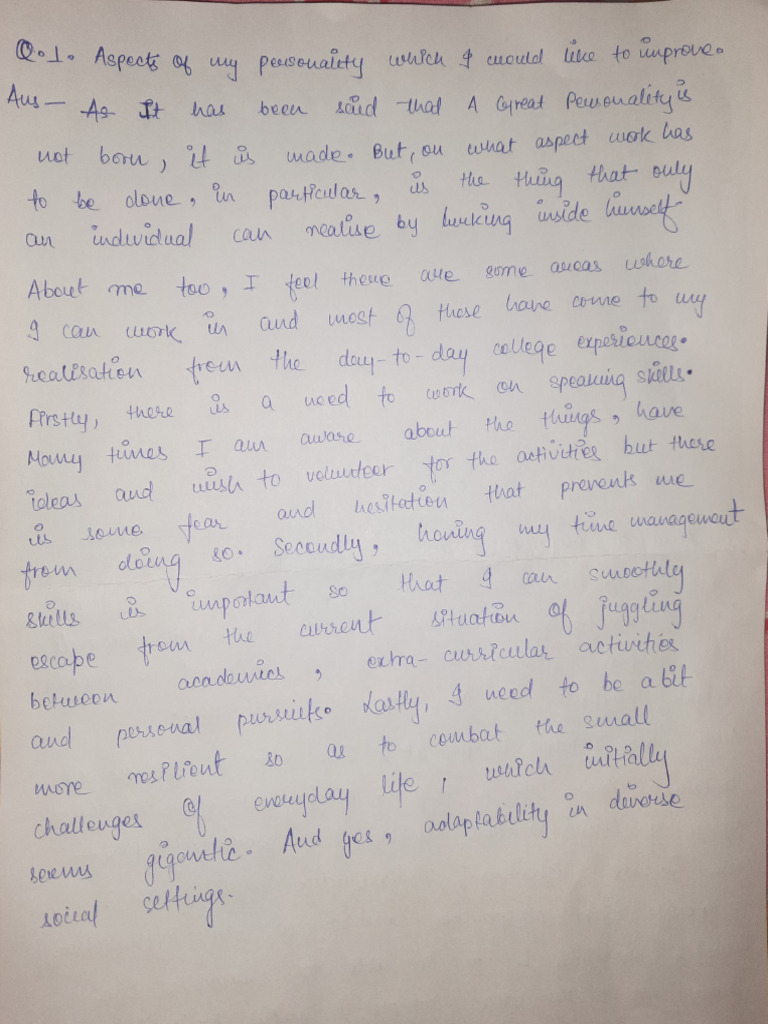 Q.1. Aspects of my personality which I would like to improve.
Ans - As It has been said that A Great Personality is
not born, it is made. But, on what aspect work has
to be done, in particular, is the thing that only
an individual can realise by lurking inside himself
About me too, I feel there are some areas where
I can work in and most of these have come to my
realisation from the day-to-day college experiences.
Firstly, there is a need to work on speaking skills.
Many times I am aware about the things, have
ideas and wish to volunteer for the activities but there
is some fear and hesitation that prevents me
from doing so. Secondly, honing my time management
skills is important so that I can smoothly
escape from the current situation of juggling
between academics, extra-curricular activities
and personal pursuits. Lastly, I need to be a bit
more resilient so as to combat the small
challenges of everyday life, which initially
seems gigantic. And yes, adaptability in diverse
social settings.